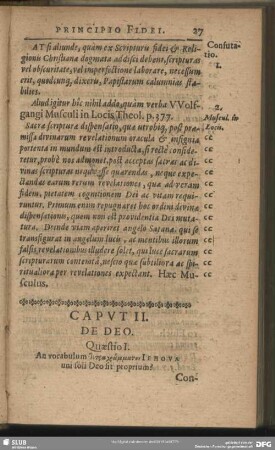 PRINCIPIO FIDEI. 27
AT si aliunde, quàm ex Scripturis fidei & Reli-
gionis Christianæ dogmata addisci debent, scripturas
vel obscuritate, vel imperfectione laborare, necessum
erit, quodcunq; dixeris, Papistarum calumnias sta-
biliet.
Aliud igitur hic nihil addo, quàm verba VVolf-
gangi Musculi in Locis Theol. p. 377.
Sacræ scripturæ dispensatio, quæ utrobiq; post præ-
missa divinarum revelationum oracula & insignia
portenta in mundum est introducta, si rectè conside-
retur, probè nos admonet, post acceptas sacras ac di-
vinas scripturas nequaquam esse quærendas, neque ex-
pectandas earum rerum revelationes, quæ ad veram
fidem, pietatem cognitionem Dei ac vitam requi-
runtur. Primum enim repugnaret hoc ordini divinæ
dispensationis, quem non est providentia Dei muta-
tura. Deinde viam aperiret angelo Satanæ: qui se
transfigurat in angelum lucis, ac mentibus illorum
falsis revelationibus illudere solet, qui hisce sacrarum
scripturarum contenti, nescio quæ subtiliora ac spi-
ritualiora per revelationes expectant. Hæc Mu-
sculus.
Confuta-
tio.
1.
2.
Muscul. in
Locis.
CAPUT II.
DE DEO.
Quæstio I.
An vocabulum IEHOVA
uni soli Deo sit proprium?
Con-
SLUB
DFG